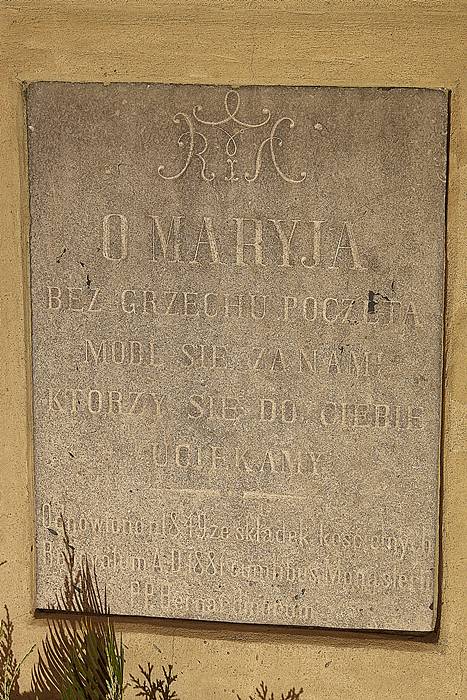 O MARYJA
BEZ GRZECHU POCZĘTA
MÓDL SIĘ ZA NAMI
KTÓRZY SIĘ DO CIEBIE
UCIEKAMY
Odnowiono r. 1849 ze składek kościelnych
A.D 1881
P.P. Bernardinorum